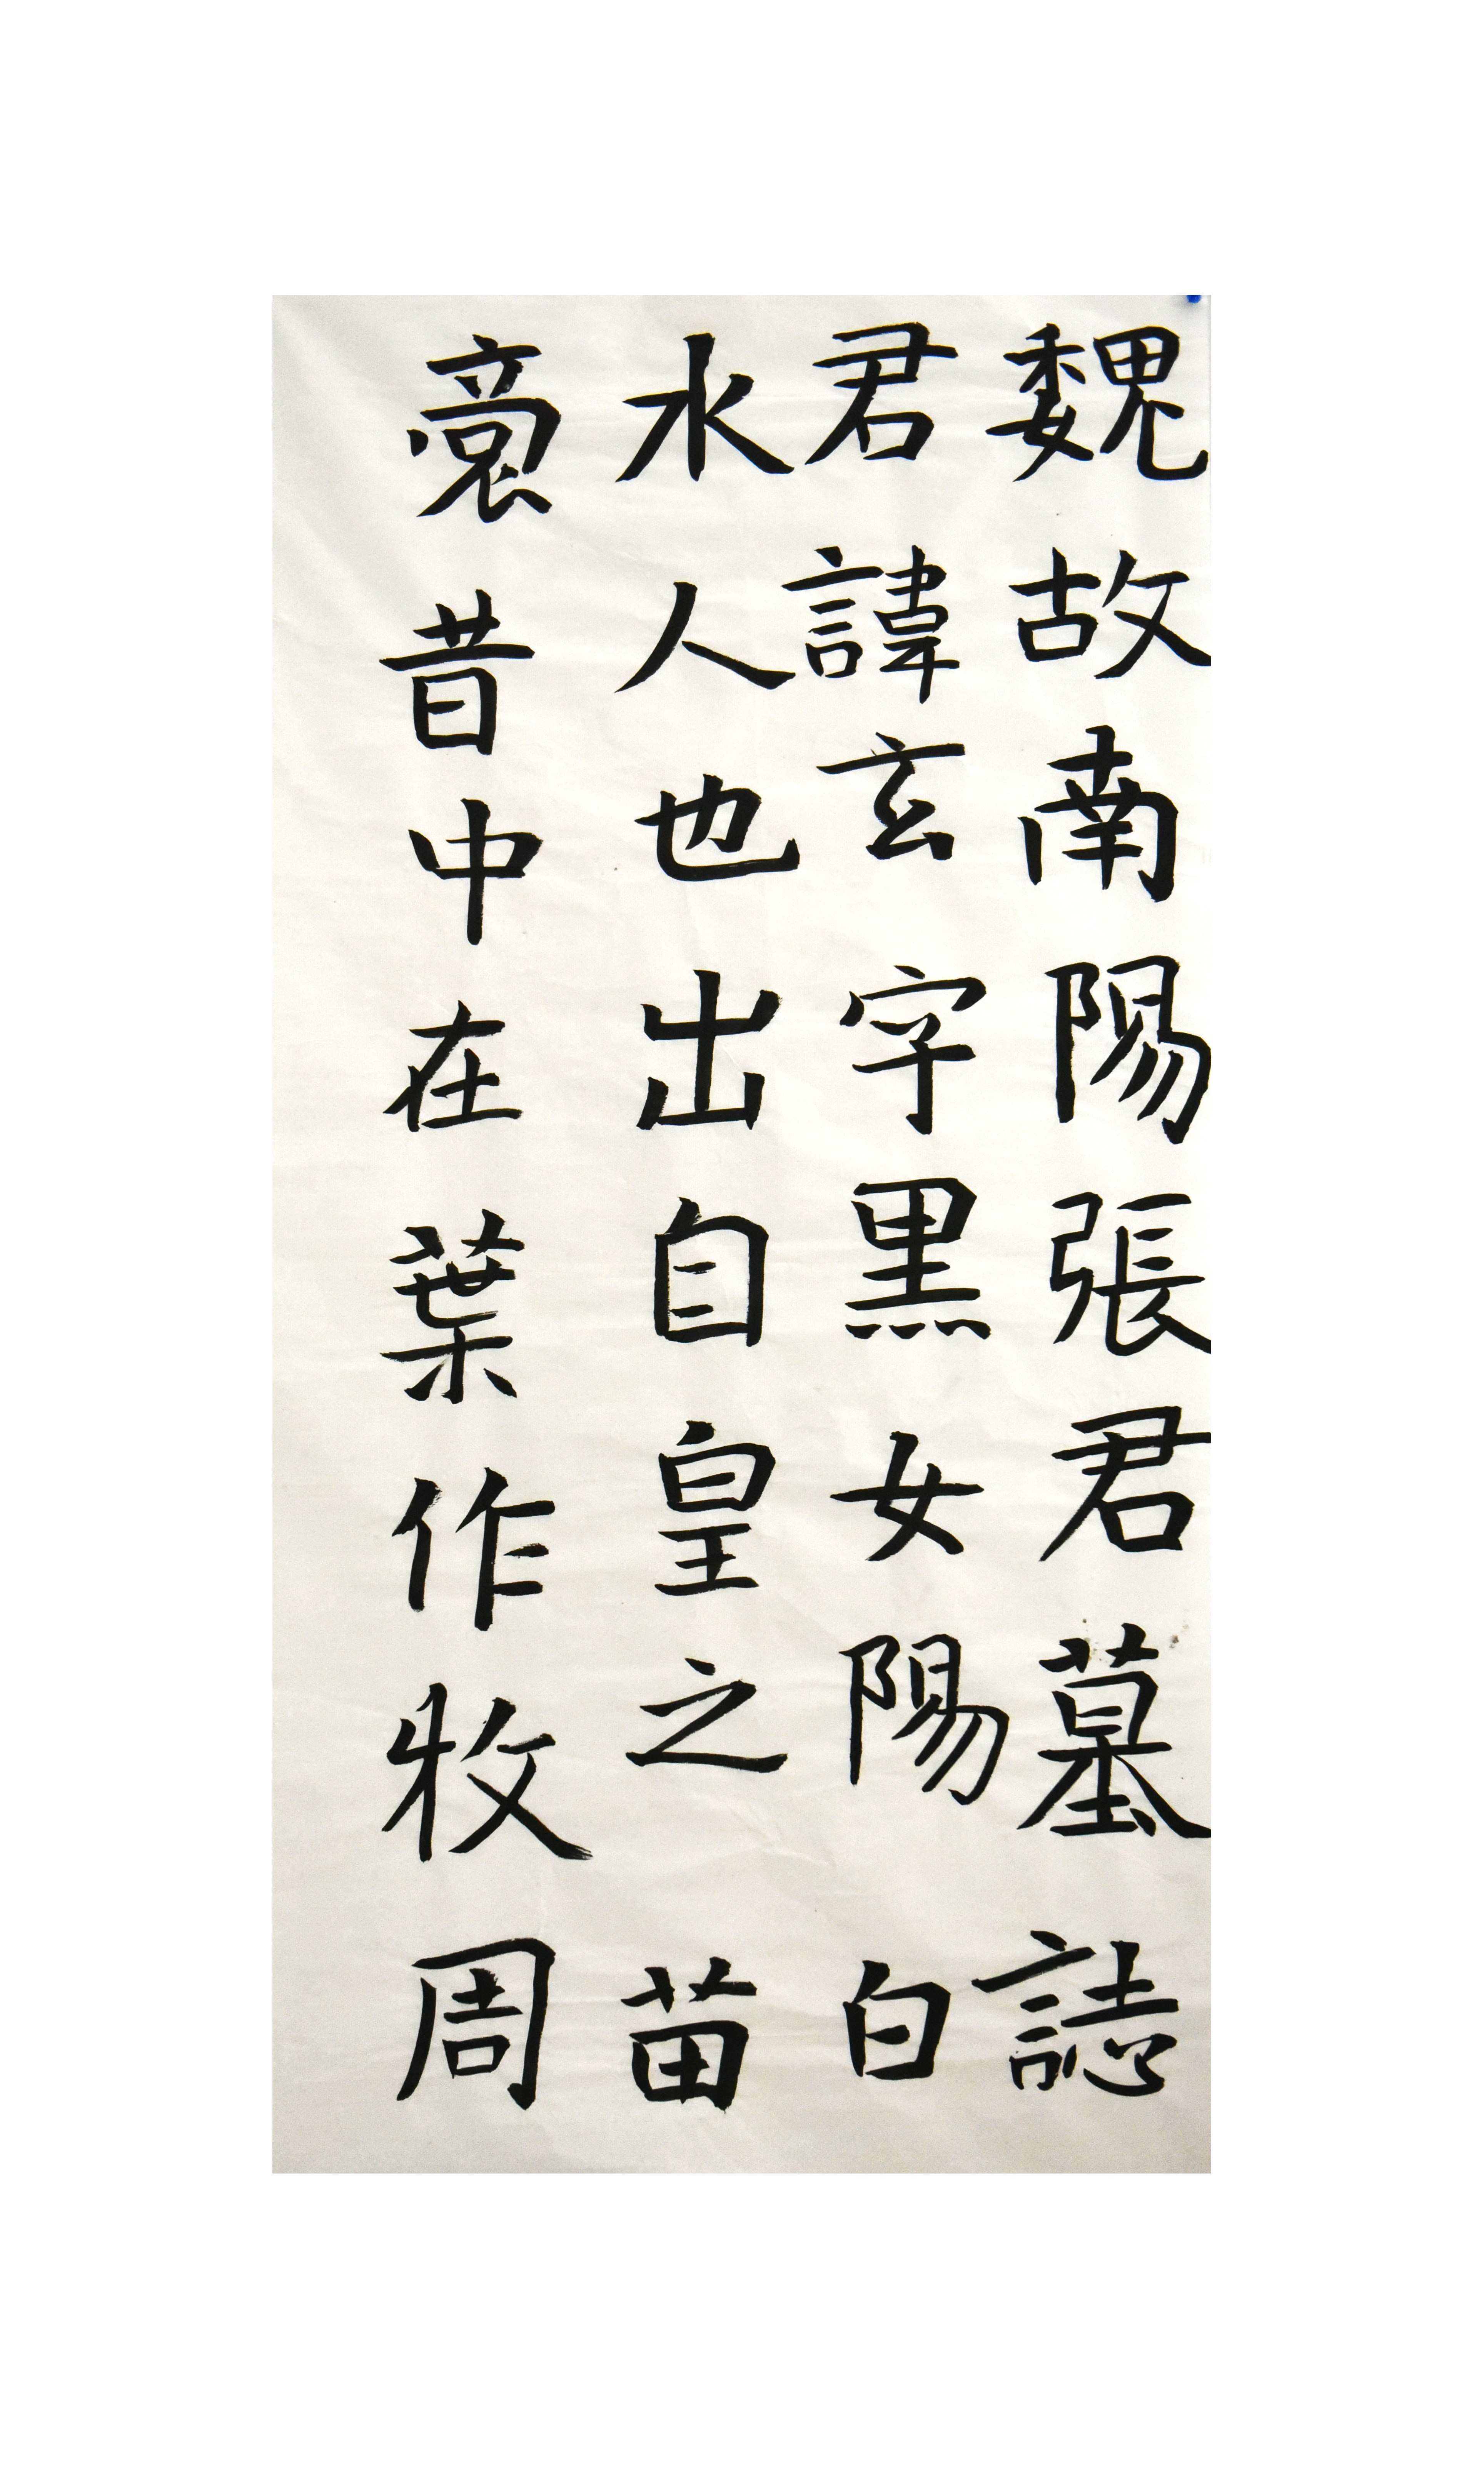 魏故南陽張君墓誌
君諱玄字黑女陽白
水人也出自皇之苗
裔昔中在葉作牧周